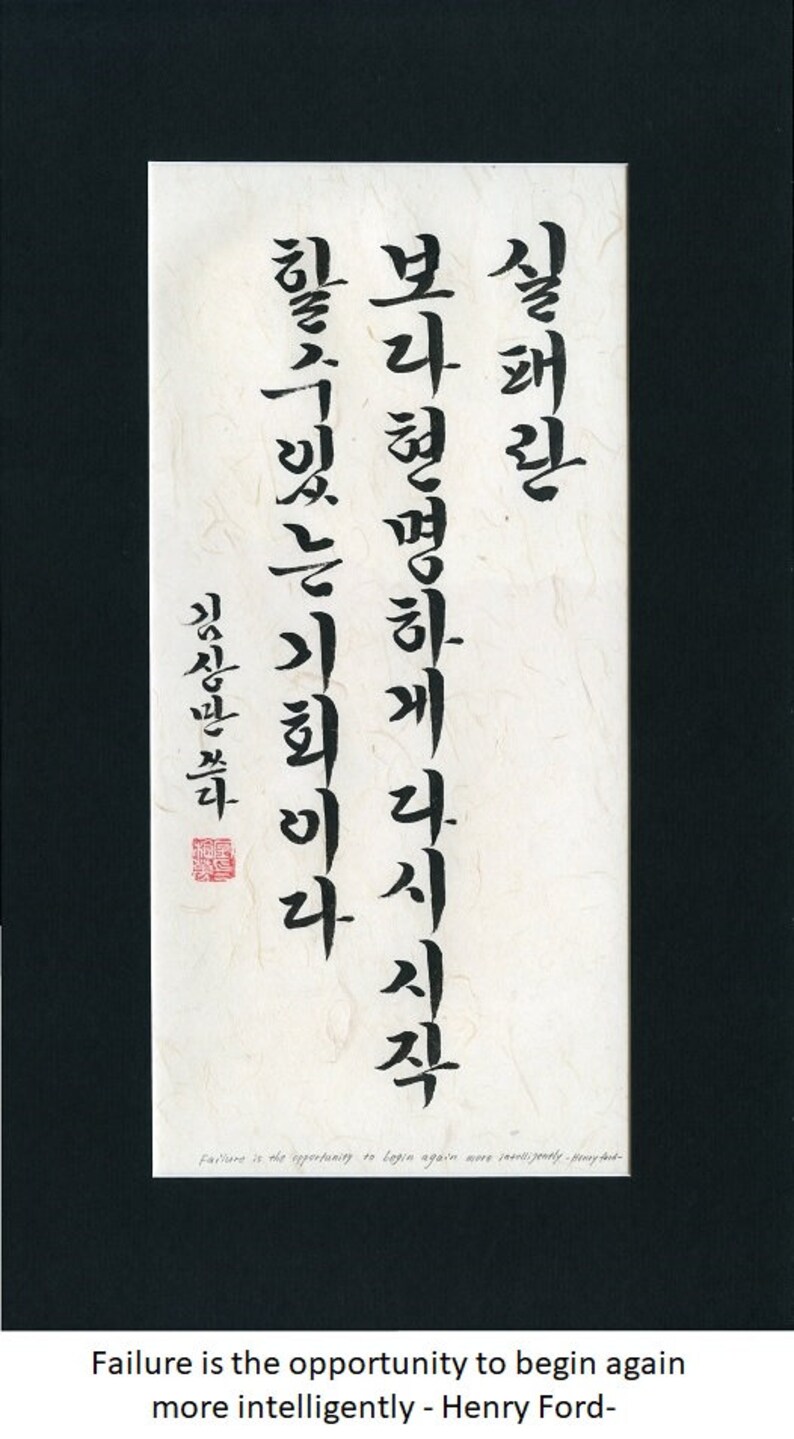 실패란
보다현명하게다시시작
할수있는기회이다
김상만쓰다
Failure is the opportunity to begin again more intelligently -Henry Ford-
Failure is the opportunity to begin again
more intelligently - Henry Ford-